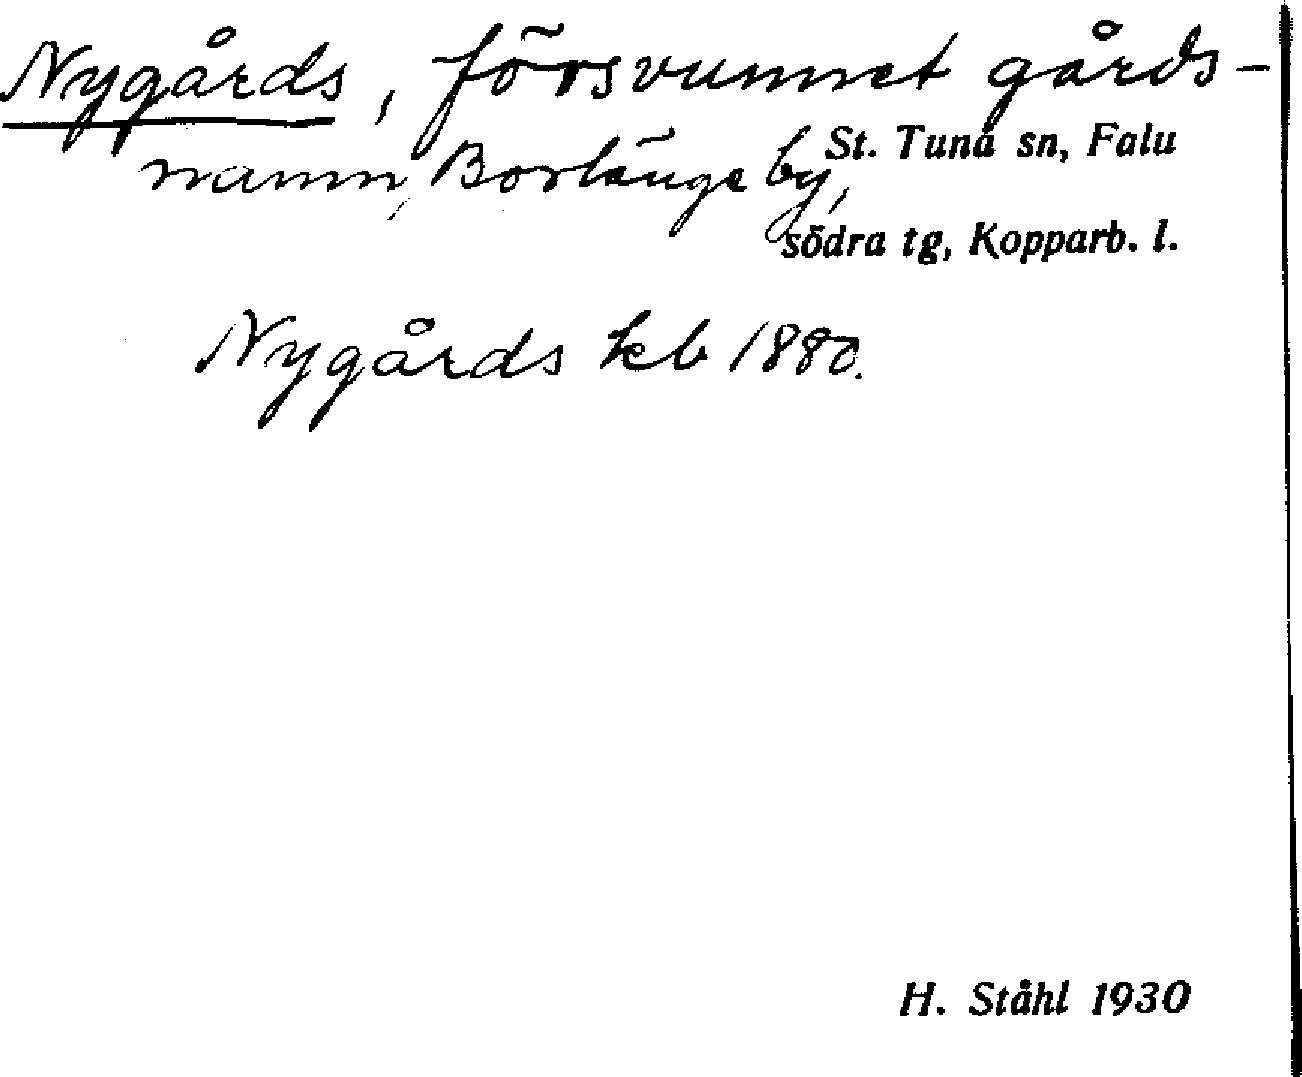 Nygårds, försvunnet gårds-
namn, Borlänge by,
St. Tuna sn, Falu
södra tg, Kopparb. l.
Nygårds kb 1880.
H. Ståhl 1930